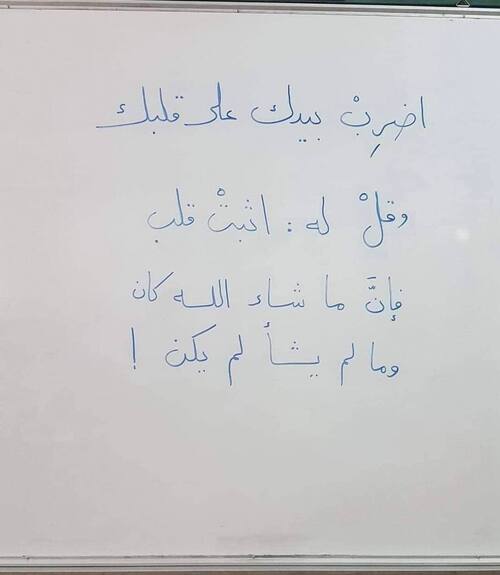 اضرِبْ بيدك على قلبك
وقلْ له : اثبتْ قلب
فإنَّ ما شاء الله كان
وما لم يشأ لم يكن !